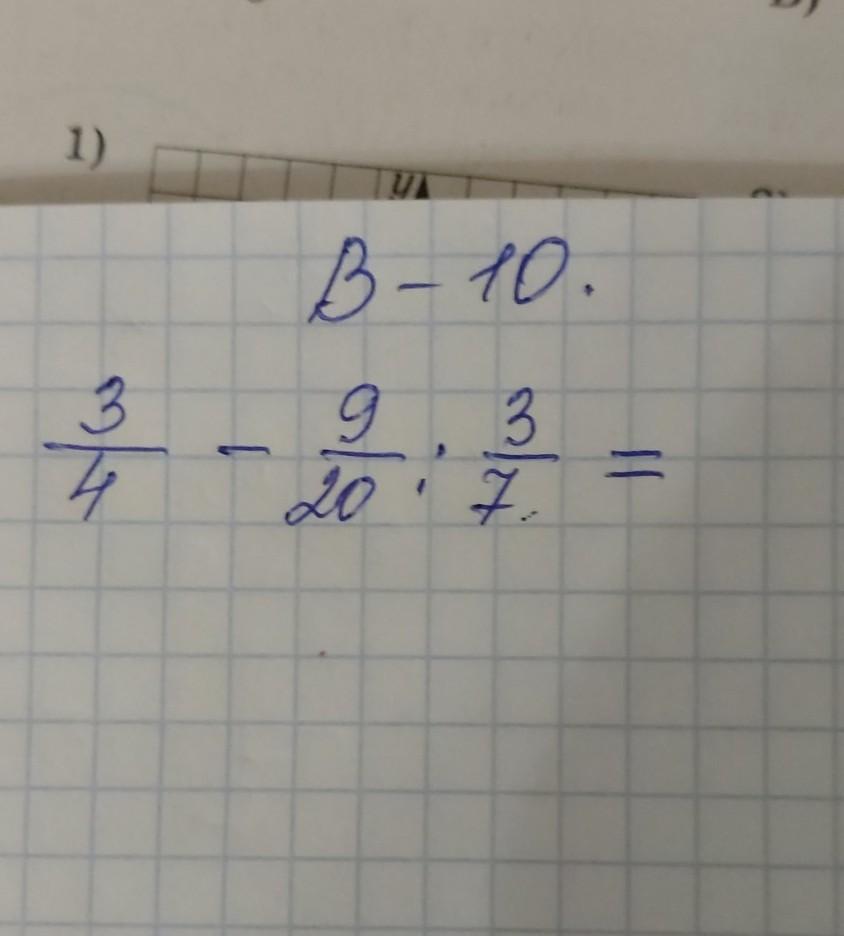 1)
y
В – 10.
3/4 - 9/20 : 3/7 =